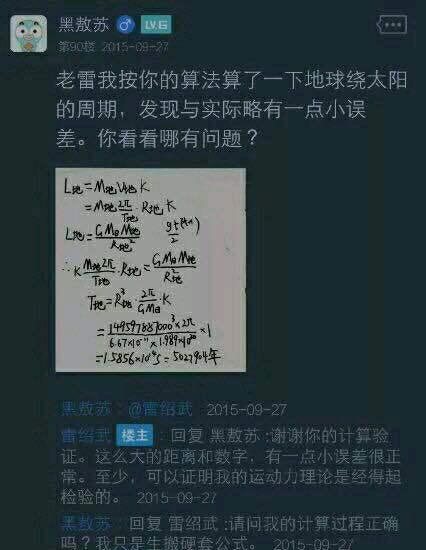 黑敖苏 ♂ LV.6
第90楼 2015-09-27
老雷我按你的算法算了一下地球绕太阳
的周期，发现与实际略有一点小误
差。你看看哪有问题？
L地=M地V地K
=M地 2π/T地 · R地 K
L地= G M日 M地/R地²
∴ K M地2π/T地 · R地 = G M日 M地/R地²
T地=R地³ · 2π/GM日 · K
= 149597887000³×2π/6.67×10⁻¹¹×1.989×10³⁰ ×1
黑敖苏：@雷绍武 2015-09-27
雷绍武 楼主：回复 黑敖苏 :谢谢你的计算验
证。这么大的距离和数字，有一点小误差很正
常。至少，可以证明我的运动力理论是经得起
检验的。 2015-09-27
黑敖苏：回复 雷绍武 :请问我的计算过程正确
吗？我只是生搬硬套公式。 2015-09-27